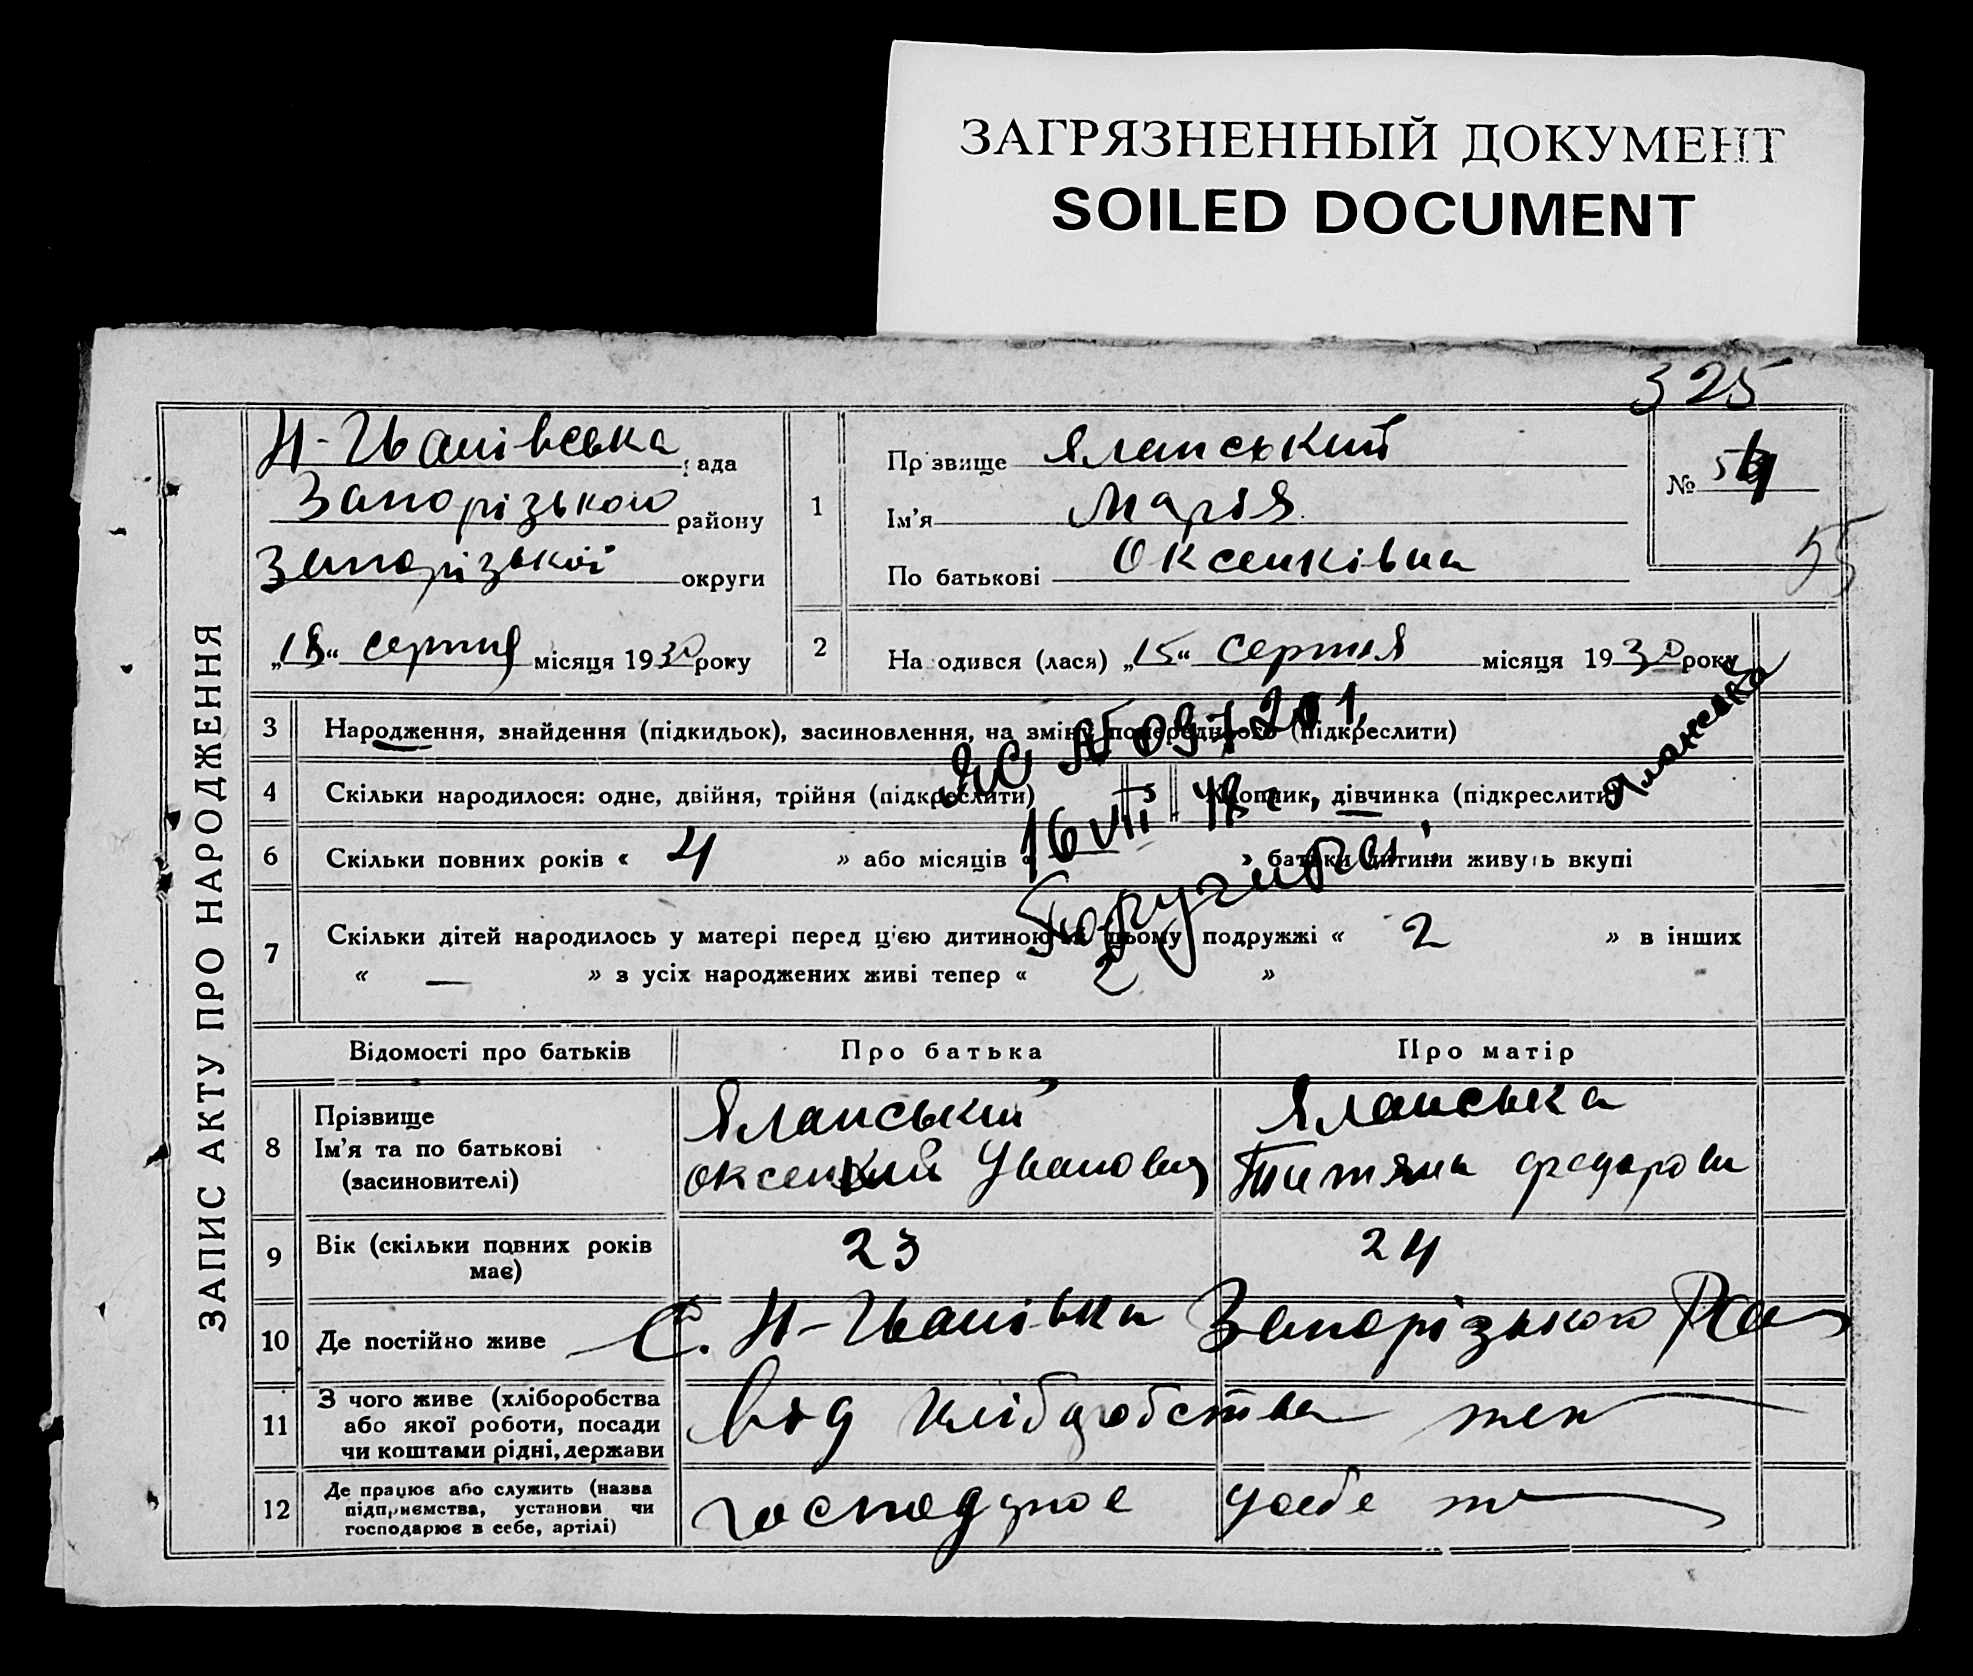 ЗАГРЯЗНЕННЫЙ ДОКУМЕНТ
SOILED DOCUMENT
325
ЗАПИС АКТУ ПРО НАРОДЖЕННЯ
Н-Іванівська рада
Запорізького району
Запорізької округи
„18“ серпня місяця 1930 року
1
Прізвище Яланський
Ім'я Марія
По батькові Оксенківна
№ 54
55
2
На одився (лася) „15“ серпня місяця 1930 року
Яланська
3 Народження, знайдення (підкидьок), засиновлення, на зміну попереднього (підкреслити)
4 Скільки народилося: одне, двійня, трійня (підкреслити)
5 Хлопчик, дівчинка (підкреслити)
16 VII
6 Скільки повних років « 4 » або місяців « » батьки дитини живуть вкупі
7 Скільки дітей народилось у матері перед цією дитиною в цьому подружжі « 2 » в інших
« — » з усіх народжених живі тепер « 2 »
Відомості про батьків Про батька Про матір
8 Прізвище
Ім'я та по батькові
(засиновителі)
Яланський
Оксенкий Іванович
Яланська
Титяна Федоровн
9 Вік (скільки повних років
має)
23 24
10 Де постійно живе С. Н-Іванівка Запорізького
11 З чого живе (хліборобства
або якої роботи, посади
чи коштами рідні, держави
від хліборобства теж
12 Де працює або служить (назва
підприємства, установи чи
господарює в себе, артілі)
господрює усебе